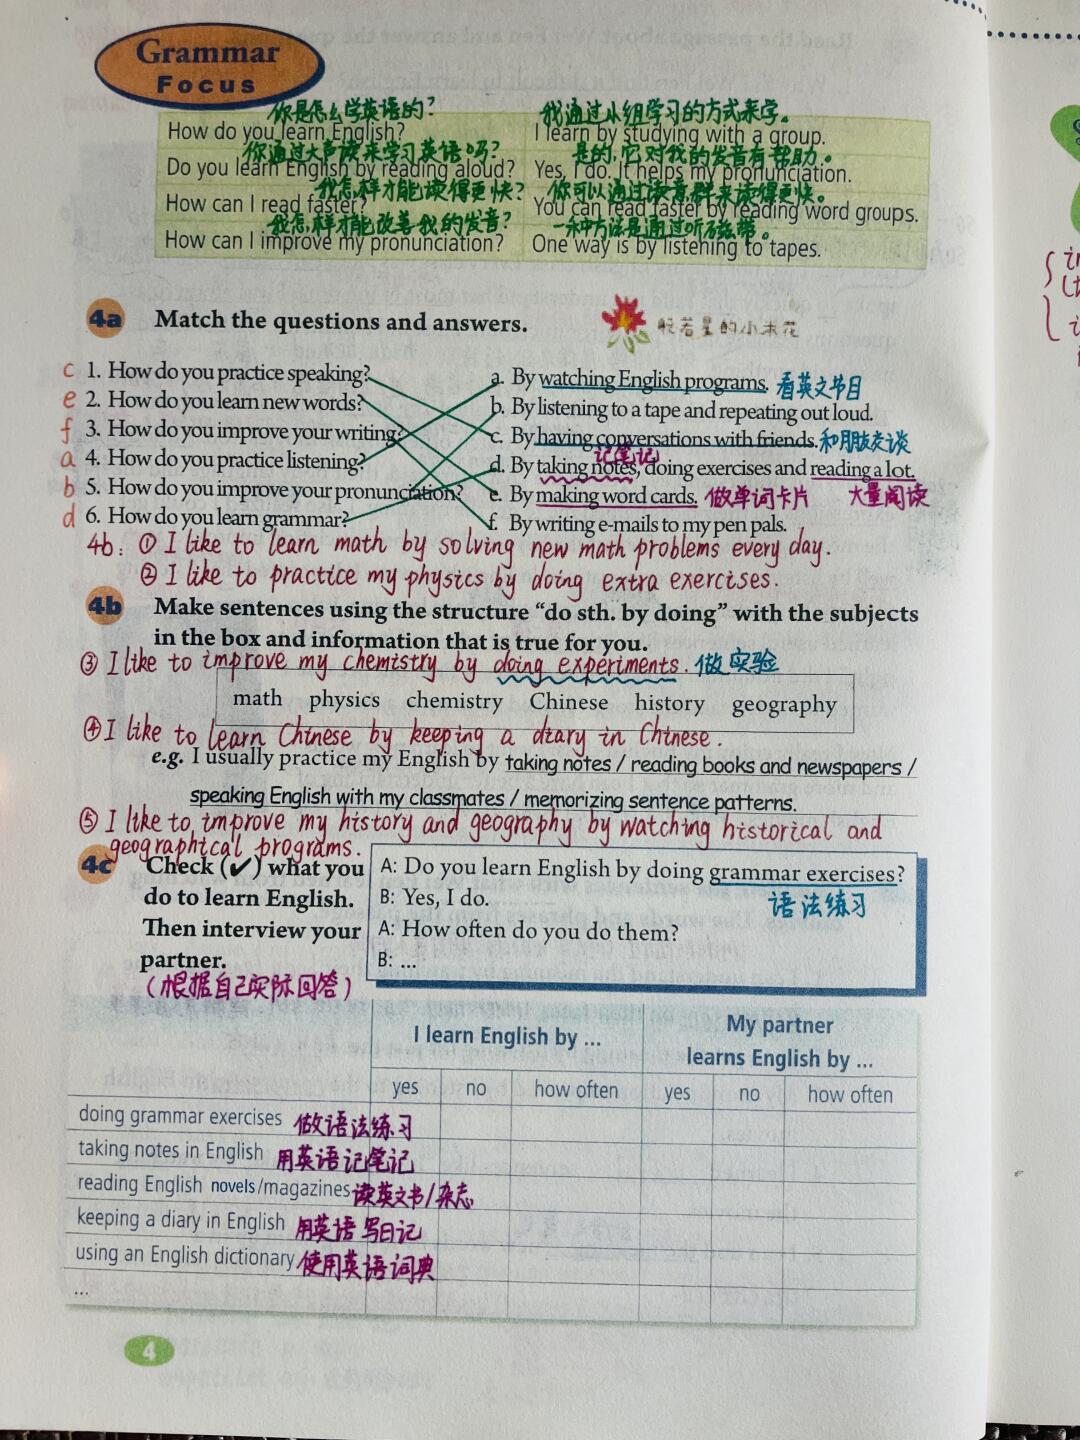 Grammar
Focus
你是怎么学英语的？
How do you learn English?
我通过小组学习的方式来学。
I learn by studying with a group.
你通过大声读来学习英语吗？
Do you learn English by reading aloud?
是的，它对我的发音有帮助。
Yes, I do. It helps my pronunciation.
我怎样才能读得更快？
How can I read faster?
你可以通过读意群来读得更快。
You can read faster by reading word groups.
我怎样才能改善我的发音？
How can I improve my pronunciation?
一种方法是通过听磁带。
One way is by listening to tapes.
4a Match the questions and answers.
般若星的小米花
c 1. How do you practice speaking?
e 2. How do you learn new words?
f 3. How do you improve your writing?
a 4. How do you practice listening?
b 5. How do you improve your pronunciation?
d 6. How do you learn grammar?
a. By watching English programs. 看英文节目
b. By listening to a tape and repeating out loud.
c. By having conversations with friends. 和朋友交谈
记笔记
d. By taking notes, doing exercises and reading a lot.
e. By making word cards. 做单词卡片 大量阅读
f. By writing e-mails to my pen pals.
4b: ① I like to learn math by solving new math problems every day.
② I like to practice my physics by doing extra exercises.
4b Make sentences using the structure “do sth. by doing” with the subjects
in the box and information that is true for you.
③ I like to improve my chemistry by doing experiments. 做实验
math physics chemistry Chinese history geography
④ I like to learn Chinese by keeping a diary in Chinese.
e.g. I usually practice my English by taking notes / reading books and newspapers /
speaking English with my classmates / memorizing sentence patterns.
⑤ I like to improve my history and geography by watching historical and
geographical programs.
4c Check (✔) what you
do to learn English.
Then interview your
partner.
(根据自己实际回答)
A: Do you learn English by doing grammar exercises?
B: Yes, I do. 语法练习
A: How often do you do them?
B: ...
I learn English by ...
My partner
learns English by ...
yes no how often yes no how often
doing grammar exercises 做语法练习
taking notes in English 用英语记笔记
reading English novels/magazines 读英文书/杂志
keeping a diary in English 用英语写日记
using an English dictionary 使用英语词典
...
4